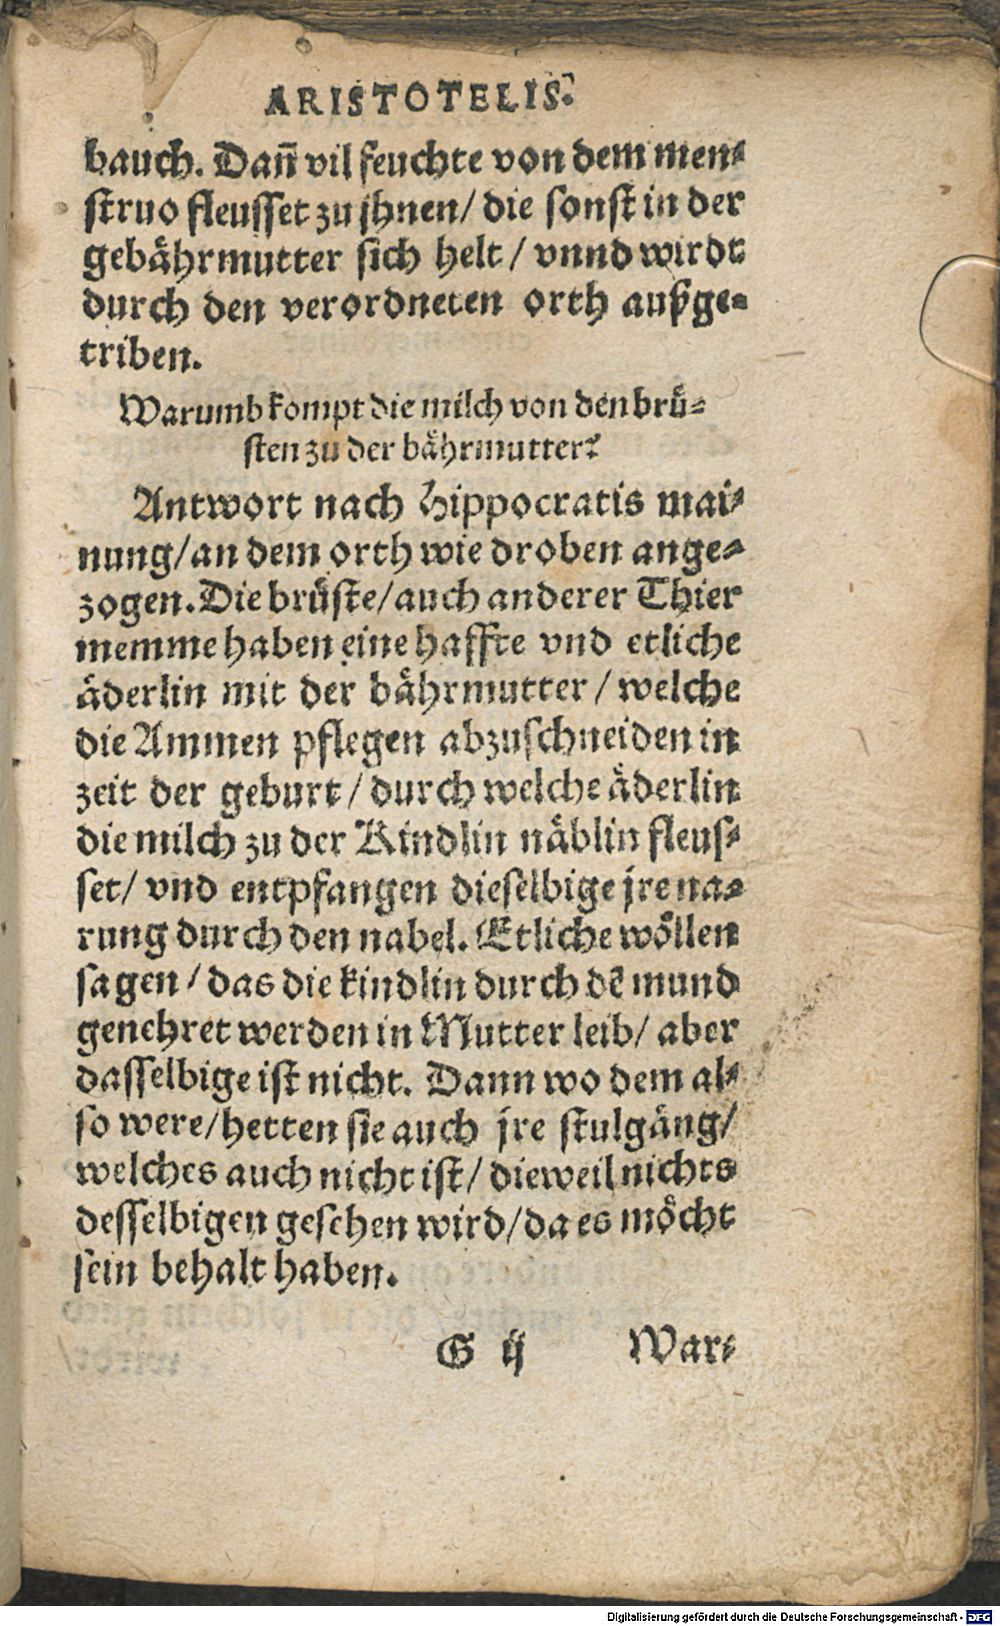 ARISTOTELIS.
bauch. Dañ vil feuchte von dem men-
struo fleusset zu jhnen/ die sonst in der
gebährmutter sich helt/ vnnd wirdt
durch den verordneten orth außge-
triben.
Warumb kompt die milch von den brü-
sten zu der bährmutter?
Antwort nach Hippocratis mai-
nung/ an dem orth wie droben ange-
zogen. Die brüste/ auch anderer Thier
memme haben eine haffte vnd etliche
äderlin mit der bährmutter/ welche
die Ammen pflegen abzuschneiden in
zeit der geburt/ durch welche äderlin
die milch zu der Kindlin näblin fleus-
set/ vnd entpfangen dieselbige jre na-
rung durch den nabel. Etliche wöllen
sagen/ das die kindlin durch dē mund
genehret werden in Mutter leib/ aber
dasselbige ist nicht. Dann wo dem al-
so were/ hetten sie auch jre stulgäng/
welches auch nicht ist/ dieweil nichts
desselbigen gesehen wird/ da es möcht
sein behalt haben.
G ij War-
Digitalisierung gefördert durch die Deutsche Forschungsgemeinschaft - DFG